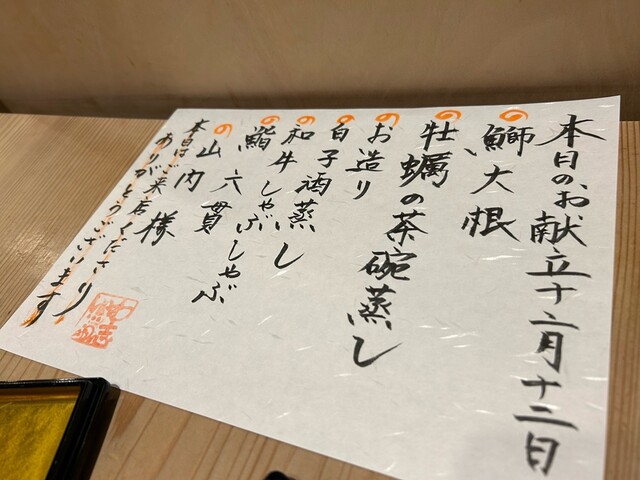 本日のお献立十二月十二日
鰤大根
牡蠣の茶碗蒸し
お造り
白子酒蒸し
和牛しゃぶしゃぶ
鮨六貫
山内様
本日はご来店くださり
ありがとうございます